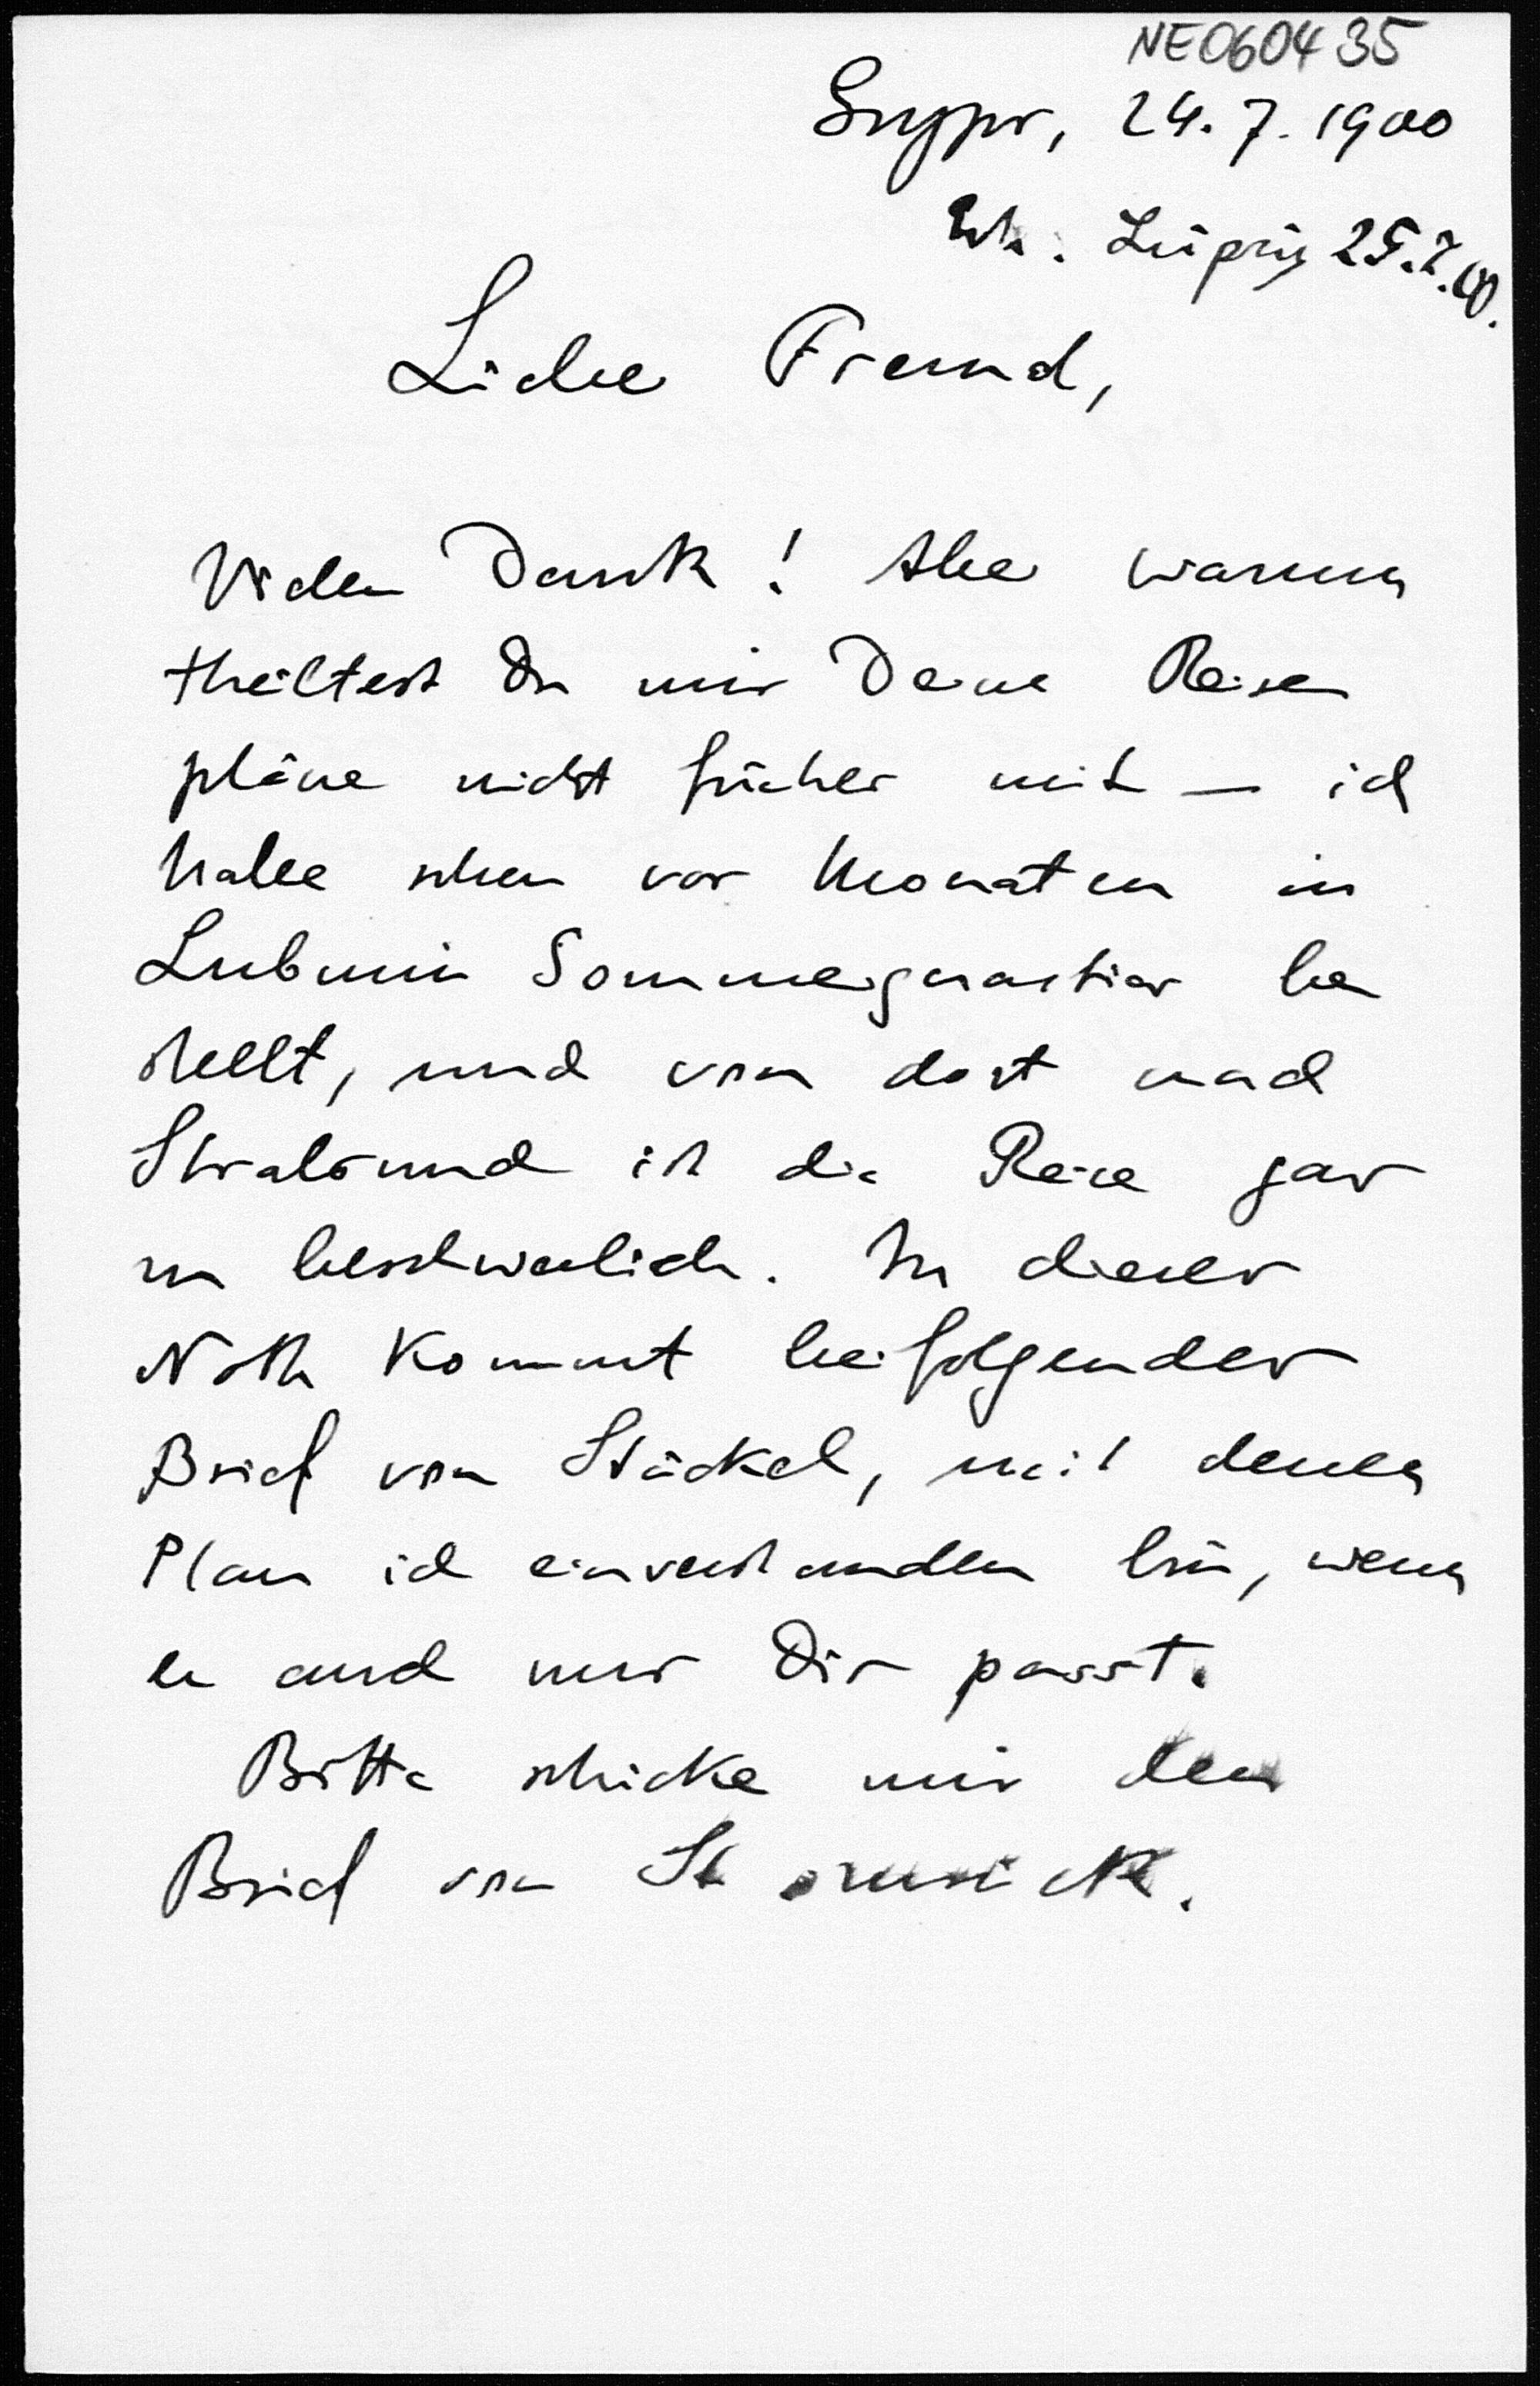 NE060435
Grypsw, 24. 7. 1900
Erh. Leipzig 25.7.00.
Lieber Freund,
Vielen Dank! Aber warum
theiltest Du mir Deine Reise
pläne nicht früher mit — ich
habe schon vor Monaten in
Lubmin Sommerquartier be
stellt, und von dort nach
Stralsund ist die Reise gar
zu beschwerlich. In dieser
Noth kommt beifolgender
Brief von Stäckel, mit dessen
Plan ich einverstanden bin, wenn
er auch nur Dir passt.
Bitte schicke mir den
Brief von St zurück.